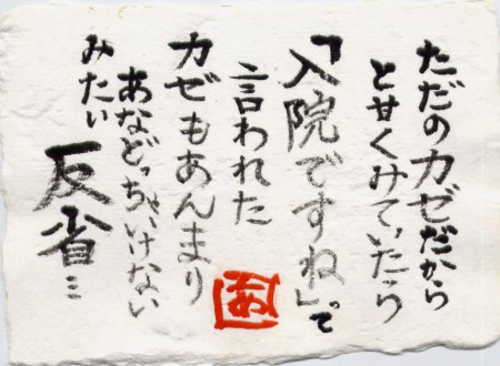 ただのカゼだから
と甘くみていたら
「入院ですね」って
言われた
カゼもあんまり
あなどっちゃいけない
みたい
反省…
あ